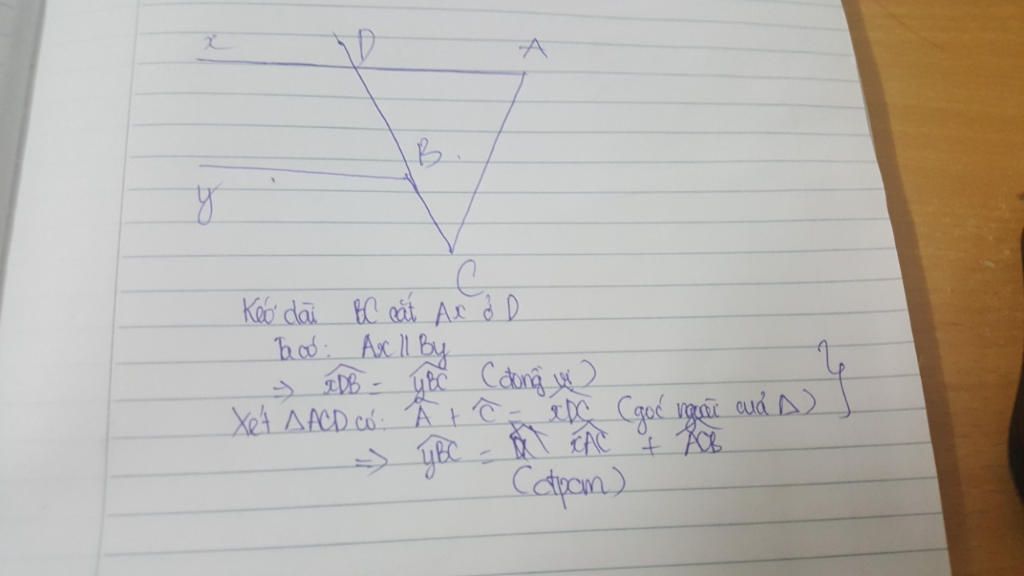 x D A
B
y
C
Kéo dài BC cắt Ax ở D
Ta có: Ax // By
=> xDB = yBC (đồng vị)
Xét ΔACD có: A + C = xDC (góc ngoài của Δ)
=> yBC = xAC + ACB
(đpcm)